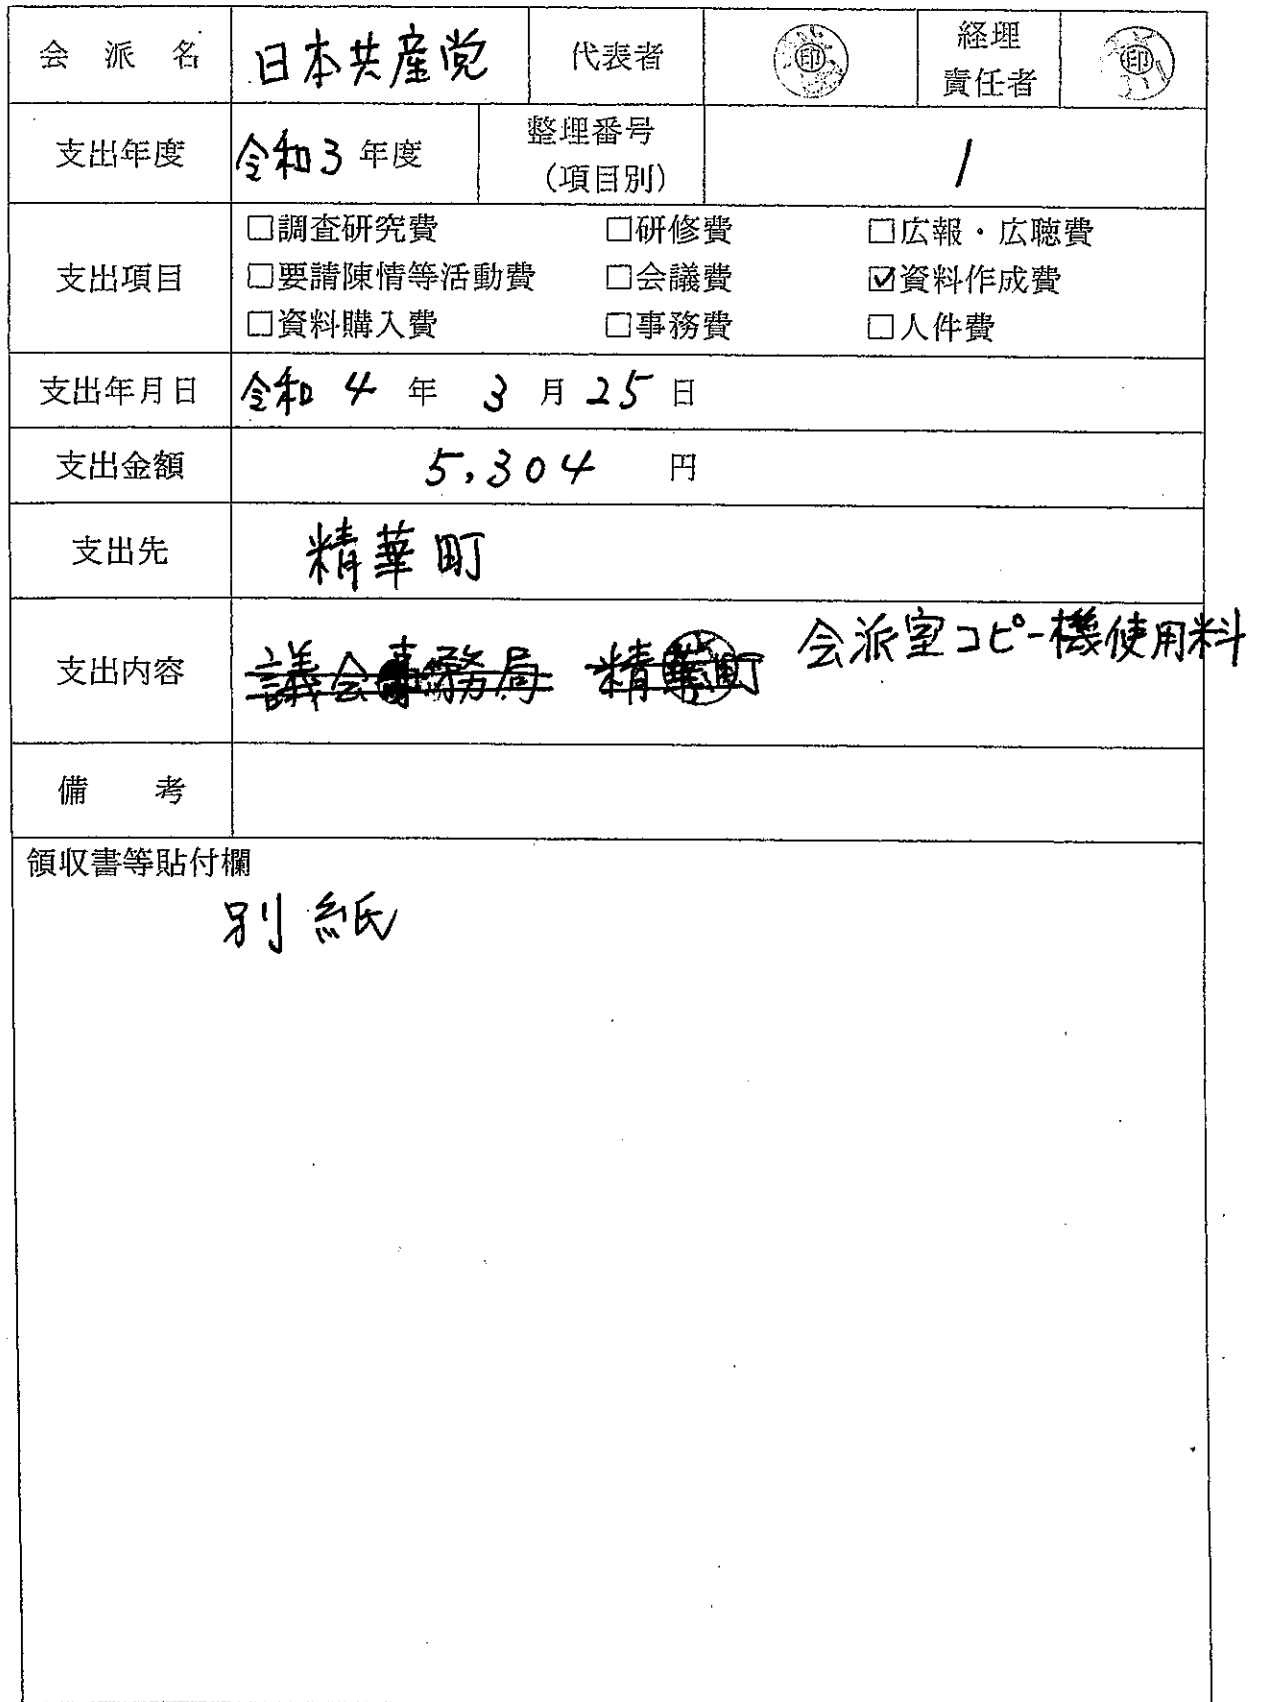 会派名 日本共産党 代表者 印 経理責任者 印
支出年度 令和3年度 整理番号(項目別) 1
支出項目
□調査研究費 □研修費 □広報・広聴費
□要請陳情等活動費 □会議費 ☑資料作成費
□資料購入費 □事務費 □人件費
支出年月日 令和 4 年 3 月 25 日
支出金額 5,304 円
支出先 精華町
支出内容 議会事務局 精華町 会派室コピー機使用料
備考
領収書等貼付欄
別紙